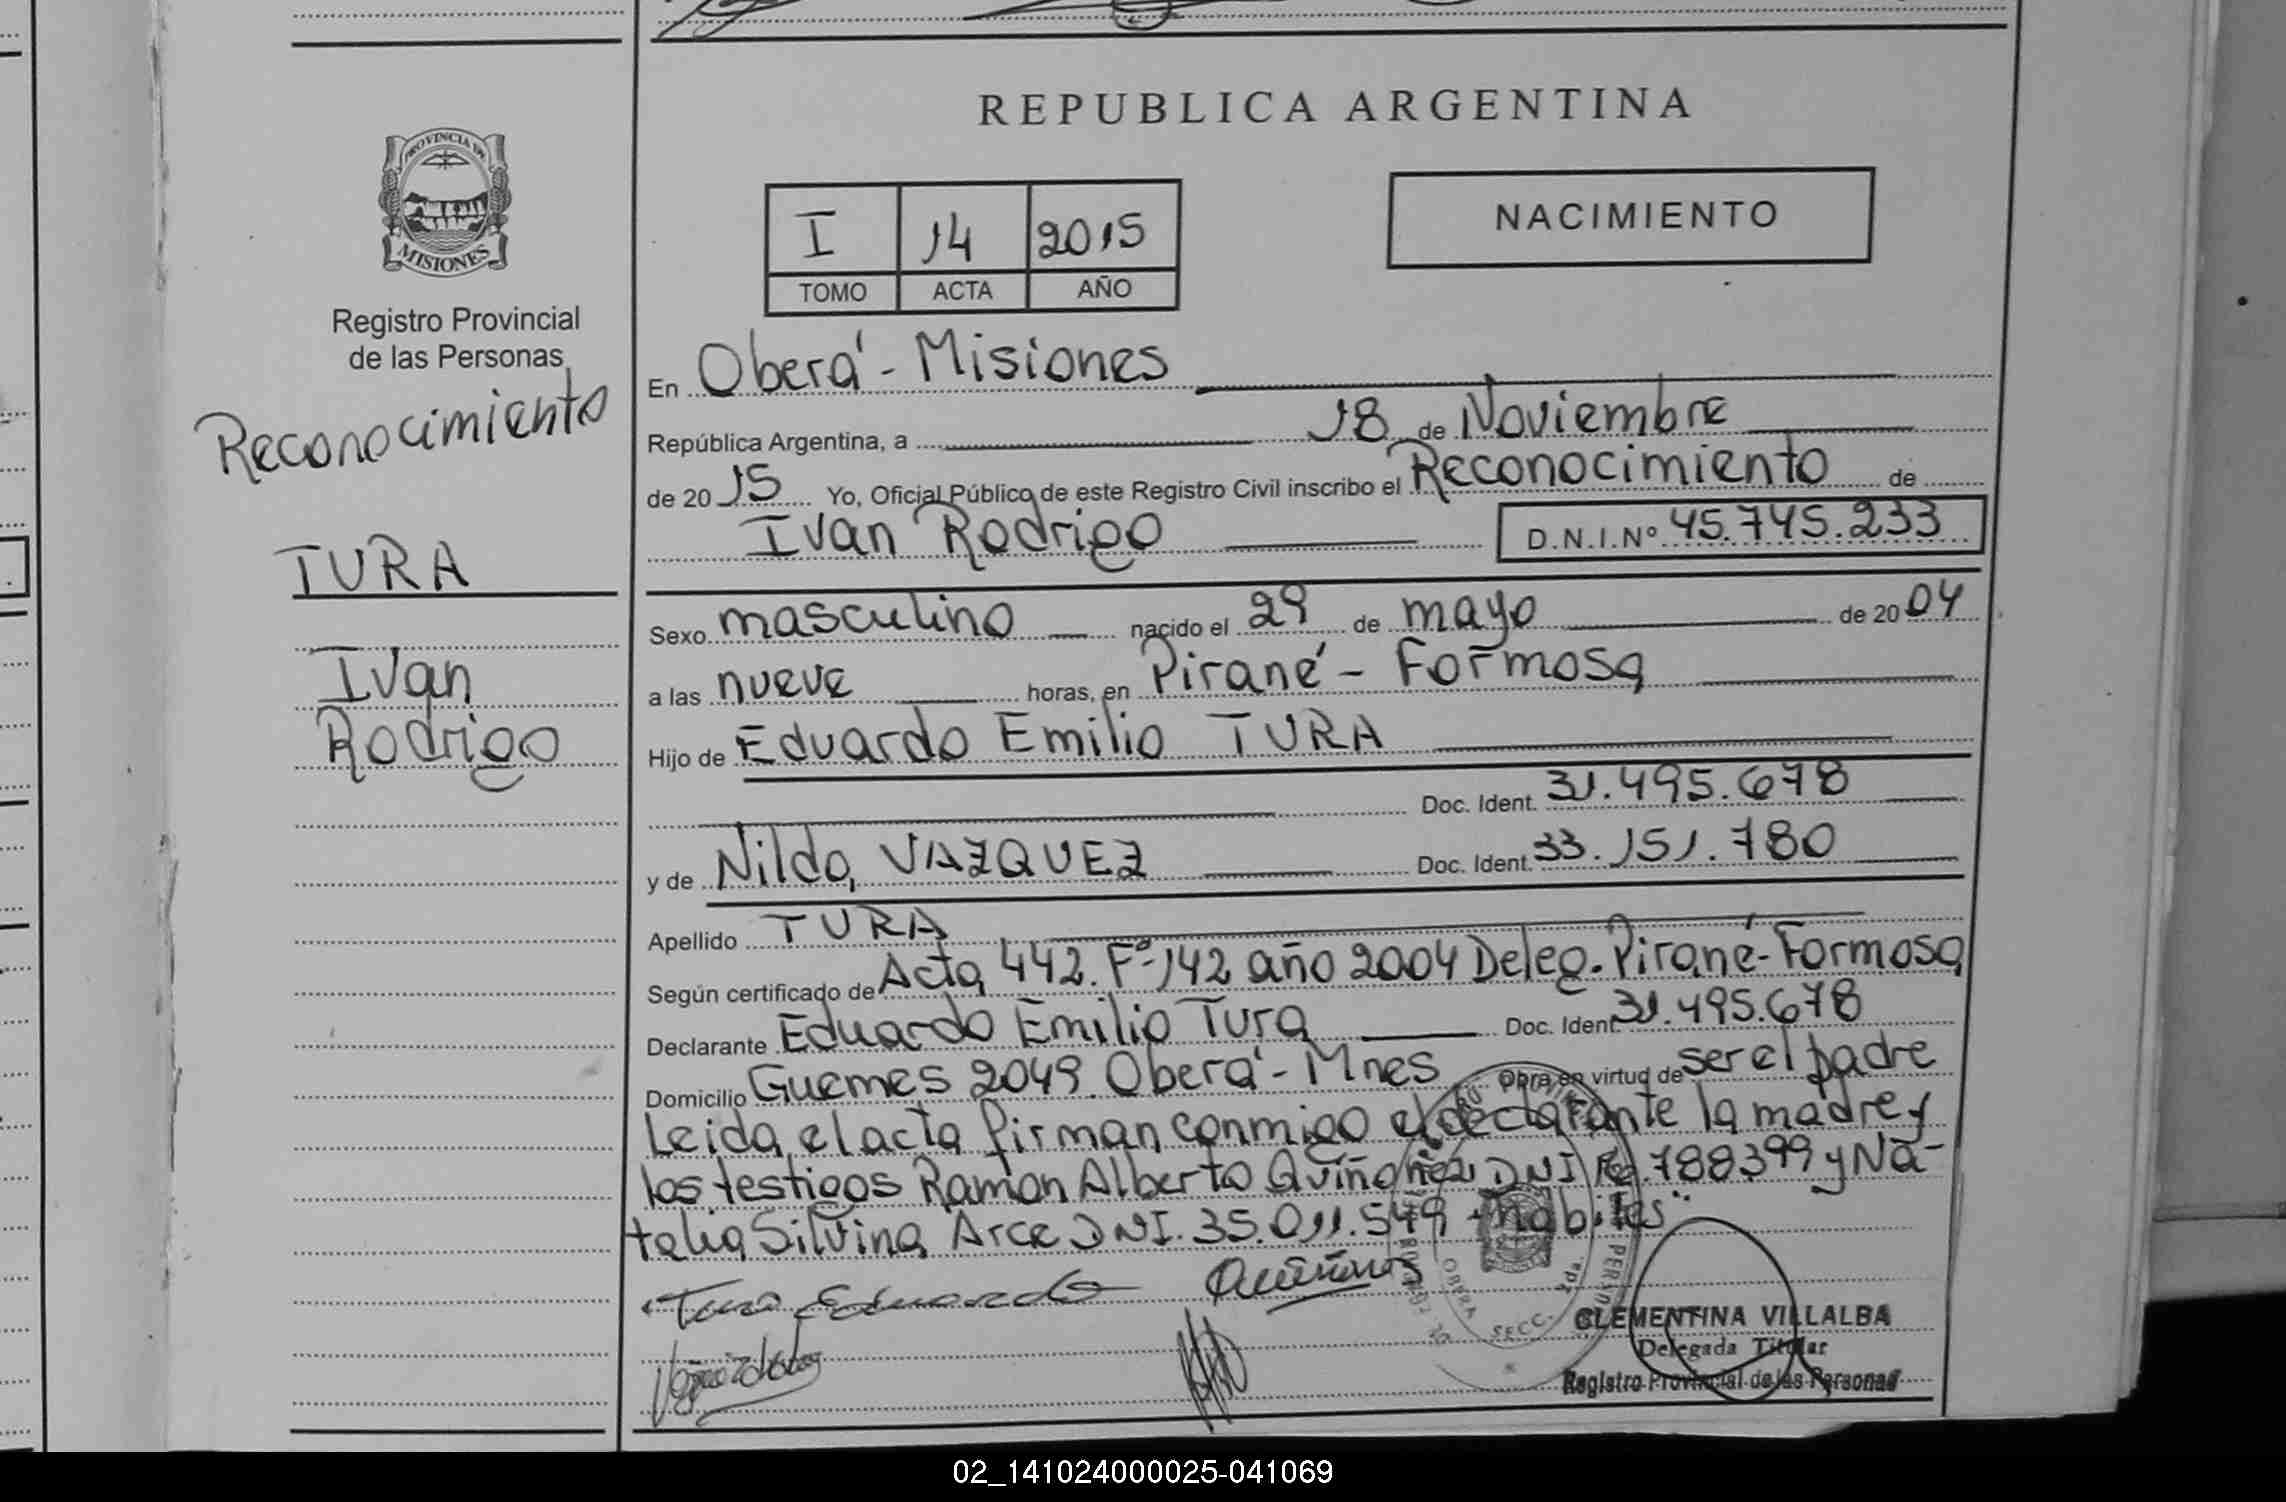 PROVINCIA DE
MISIONES
Registro Provincial
de las Personas
Reconocimiento
TURA
Ivan
Rodrigo
REPUBLICA ARGENTINA
I 14 2015
TOMO ACTA AÑO
NACIMIENTO
En Oberá - Misiones
República Argentina, a 18 de Noviembre
de 20 15 Yo, Oficial Público de este Registro Civil inscribo el Reconocimiento de
Ivan Rodrigo D.N.I.Nº 45.745.233
Sexo masculino nacido el 29 de mayo de 20 04
a las nueve horas, en Pirané - Formosa
Hijo de Eduardo Emilio TURA
Doc. Ident. 31.495.678
y de Nilda VAZQUEZ Doc. Ident. 33.151.780
Apellido TURA
Según certificado de Acta 442. Fº 142 año 2004 Deleg. Pirané - Formosa
Declarante Eduardo Emilio Tura Doc. Ident. 31.495.678
Domicilio Guemes 2049 Oberá - Mnes Obra en virtud de ser el padre
Leida el acta firman conmigo el declarante la madre y
los testigos Ramon Alberto Quiñonez DNI 788399 y Na-
talia Silvina Arce DNI. 35.011.549 - "habiles"
Tura Eduardo
OBERA SECC. 2da.
CLEMENTINA VILLALBA
Delegada Titular
Registro Provincial de las Personas
02_141024000025-041069